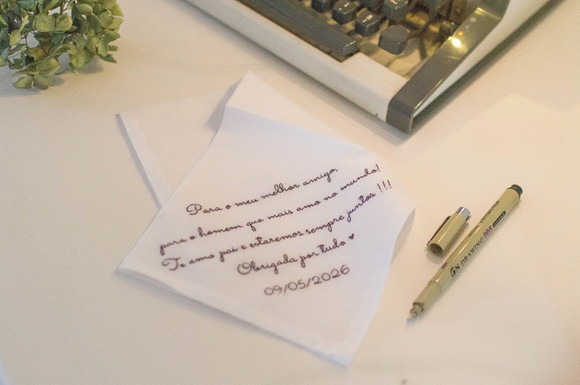 Para o meu melhor amigo,
para o homem que mais amo no mundo!
Te amo pai e estaremos sempre juntos !!!
Obrigada por tudo ♥
09/05/2026
DRAWING